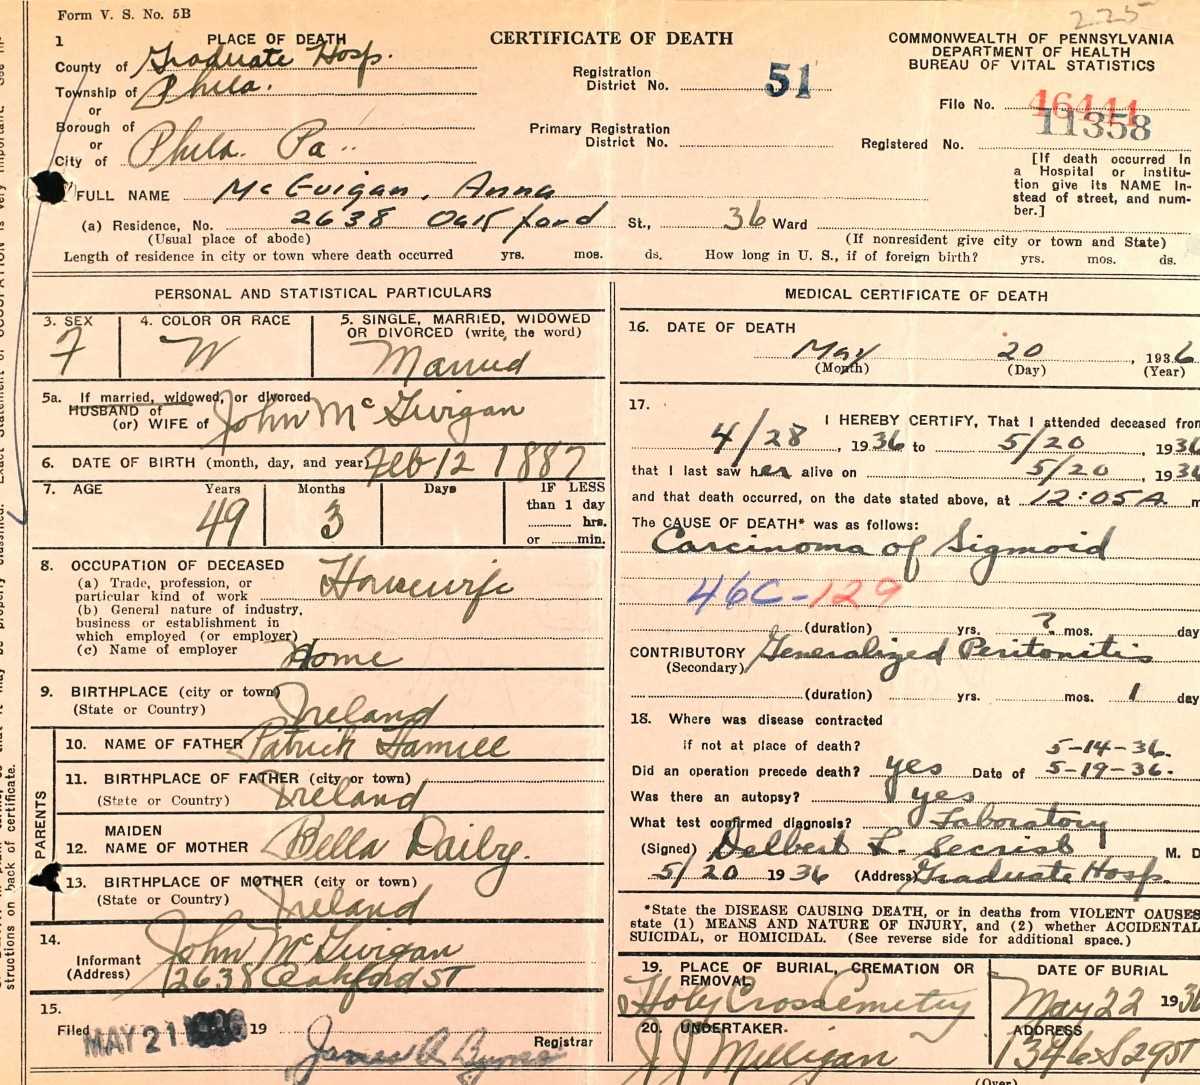 Form V. S. No. 5B
225
1 PLACE OF DEATH
CERTIFICATE OF DEATH
COMMONWEALTH OF PENNSYLVANIA
DEPARTMENT OF HEALTH
BUREAU OF VITAL STATISTICS
County of Graduate Hosp.
Township of Phila.
or
Borough of
or
City of Phila. Pa..
Registration
District No. 51
Primary Registration
District No.
File No. 46444
Registered No. 11358
[If death occurred in
a Hospital or institu-
tion give its NAME in-
stead of street, and num-
ber.]
FULL NAME McGuigan, Anna
(a) Residence, No. 2638 Oakford St., 36 Ward
(Usual place of abode)
(If nonresident give city or town and State)
Length of residence in city or town where death occurred yrs. mos. ds. How long in U. S., if of foreign birth? yrs. mos. ds.
PERSONAL AND STATISTICAL PARTICULARS
3. SEX
F
4. COLOR OR RACE
W
5. SINGLE, MARRIED, WIDOWED
OR DIVORCED (write the word)
Married
5a. If married, widowed, or divorced
HUSBAND of
(or) WIFE of John McGuigan
6. DATE OF BIRTH (month, day, and year) Feb 12 1887
7. AGE Years Months Days
49 3
IF LESS
than 1 day
hrs.
or min.
8. OCCUPATION OF DECEASED
(a) Trade, profession, or
particular kind of work Housewife
(b) General nature of industry,
business or establishment in
which employed (or employer)
(c) Name of employer Home
9. BIRTHPLACE (city or town)
(State or Country) Ireland
PARENTS
10. NAME OF FATHER Patrick Hamill
11. BIRTHPLACE OF FATHER (city or town)
(State or Country) Ireland
12. MAIDEN
NAME OF MOTHER Bella Daily.
13. BIRTHPLACE OF MOTHER (city or town)
(State or Country) Ireland
14.
Informant John McGuigan
(Address) 2638 Oakford ST
15.
Filed MAY 21 19
James A Byrne Registrar
MEDICAL CERTIFICATE OF DEATH
16. DATE OF DEATH
May 20, 1936
(Month) (Day) (Year)
17. I HEREBY CERTIFY, That I attended deceased from
4/28, 1936 to 5/20, 1936
that I last saw her alive on 5/20, 1936
and that death occurred, on the date stated above, at 12:05A. m
The CAUSE OF DEATH* was as follows:
Carcinoma of Sigmoid
46C-129
(duration) yrs. ? mos. day
CONTRIBUTORY Generalized Peritonitis
(Secondary)
(duration) yrs. mos. 1 day
18. Where was disease contracted
if not at place of death?
5-14-36.
Did an operation precede death? yes Date of 5-19-36.
Was there an autopsy? yes
What test confirmed diagnosis? Laboratory
(Signed) Delbert L. Secrist M. D
5/20 1936 (Address) Graduate Hosp.
*State the DISEASE CAUSING DEATH, or in deaths from VIOLENT CAUSES
state (1) MEANS AND NATURE OF INJURY, and (2) whether ACCIDENTAL,
SUICIDAL, or HOMICIDAL. (See reverse side for additional space.)
19. PLACE OF BURIAL, CREMATION OR
REMOVAL
Holy Cross Cemetery
DATE OF BURIAL
May 22 1936
20. UNDERTAKER
J J Milligan
ADDRESS
1346 S 29 ST
(Over)
structions on back of certificate.